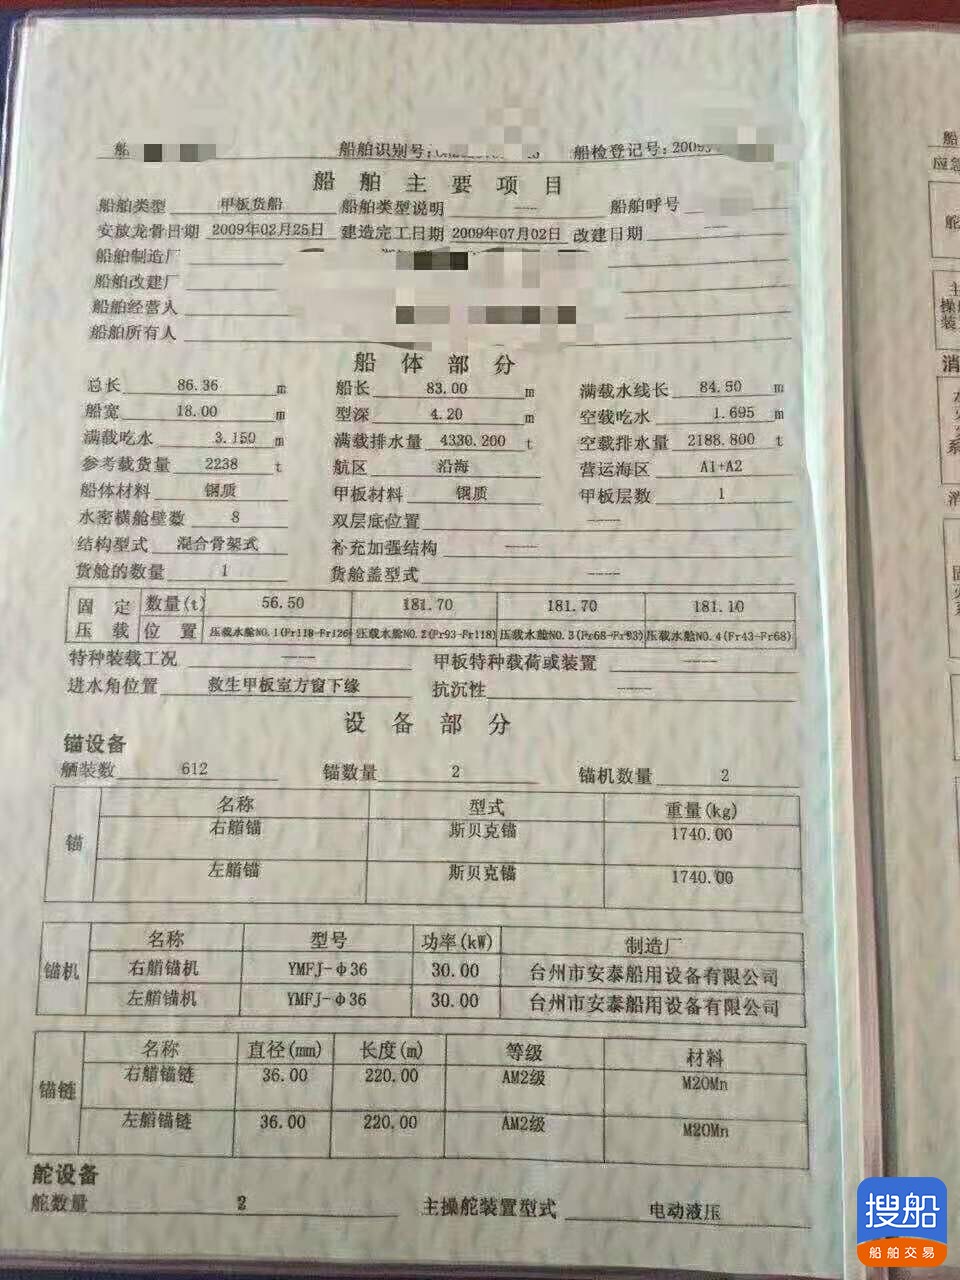 船 船舶识别号: 船检登记号:2009
船舶主要项目
船舶类型 甲板货船 船舶类型说明 —— 船舶呼号
安放龙骨日期 2009年02月25日 建造完工日期 2009年07月02日 改建日期 ——
船舶制造厂
船舶改建厂
船舶经营人
船舶所有人
船体部分
总长 86.36 m 船长 83.00 m 满载水线长 84.50 m
船宽 18.00 m 型深 4.20 m 空载吃水 1.695 m
满载吃水 3.150 m 满载排水量 4330.200 t 空载排水量 2188.800 t
参考载货量 2238 t 航区 沿海 营运海区 A1+A2
船体材料 钢质 甲板材料 钢质 甲板层数 1
水密横舱壁数 8 双层底位置 ——
结构型式 混合骨架式 补充加强结构 ——
货舱的数量 1 货舱盖型式 ——
固定 数量(t) 56.50 181.70 181.70 181.10
压载 位置 压载水舱NO.1(Fr118-Fr126) 压载水舱NO.2(Fr93-Fr118) 压载水舱NO.3(Fr68-Fr93) 压载水舱NO.4(Fr43-Fr68)
特种装载工况 —— 甲板特种载荷或装置 ——
进水角位置 救生甲板室方窗下缘 抗沉性 ——
设备部分
锚设备
舾装数 612 锚数量 2 锚机数量 2
名称 型式 重量(kg)
锚
右艏锚 斯贝克锚 1740.00
左艏锚 斯贝克锚 1740.00
名称 型号 功率(kW) 制造厂
锚机
右艏锚机 YMFJ-φ36 30.00 台州市安泰船用设备有限公司
左艏锚机 YMFJ-φ36 30.00 台州市安泰船用设备有限公司
名称 直径(mm) 长度(m) 等级 材料
锚链
右艏锚链 36.00 220.00 AM2级 M20Mn
左艏锚链 36.00 220.00 AM2级 M20Mn
舵设备
舵数量 2 主操舵装置型式 电动液压
船
应急
舵
主
操舵
装
消
消
搜船
船舶交易